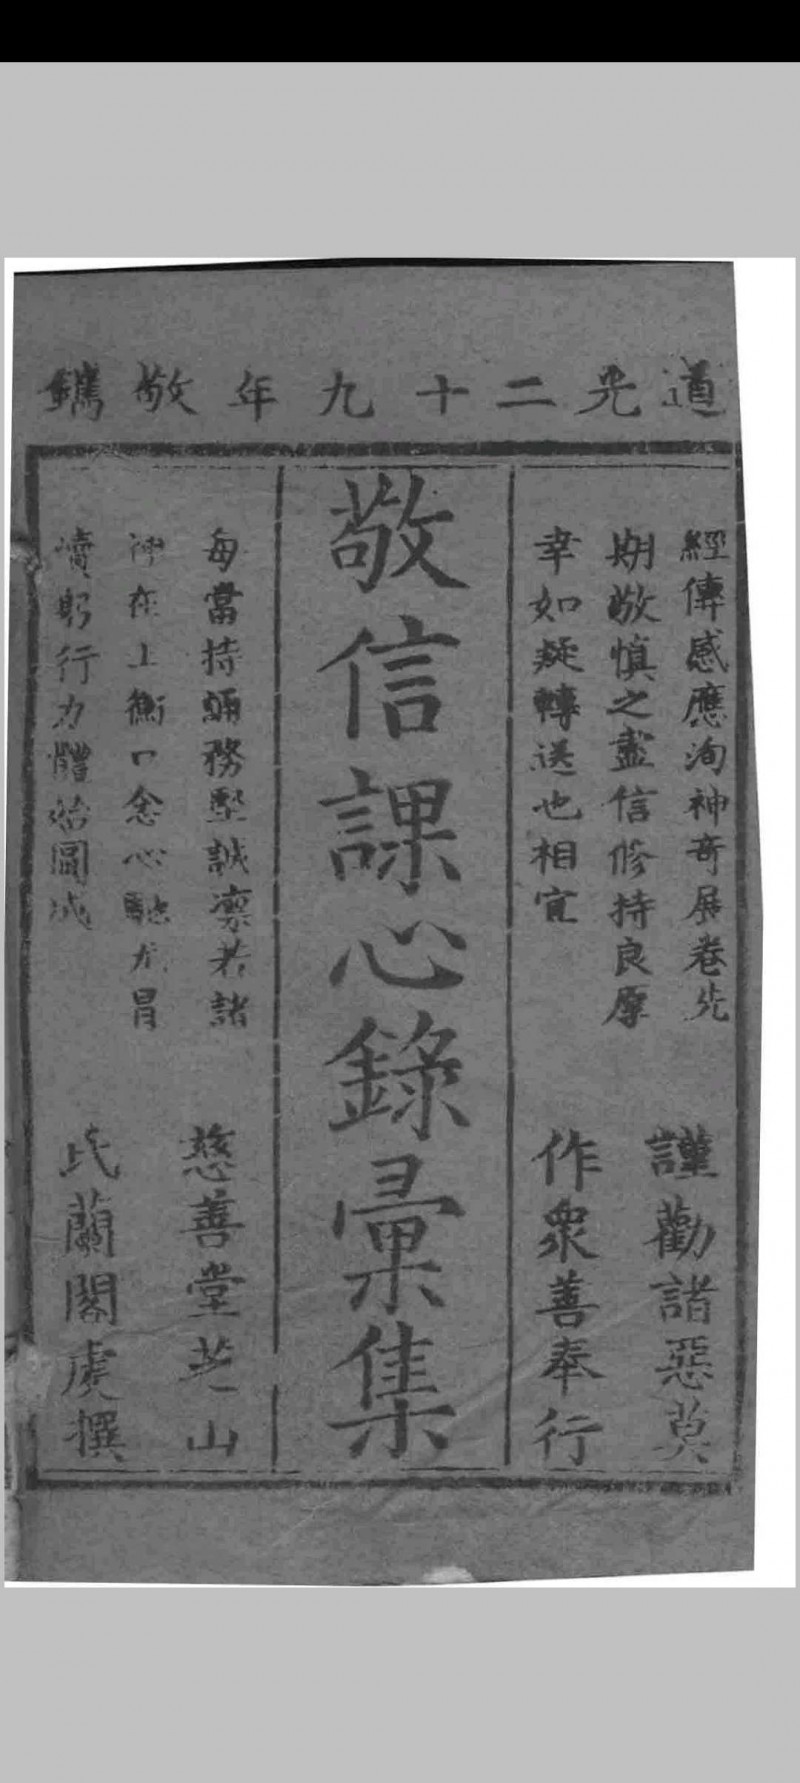 道光二十九年敬鐫
經傳感應洵神奇展卷先
期敬慎之盡信修持良厚
幸如疑轉送也相宜
謹勸諸惡莫
作衆善奉行
敬信課心錄彙集
每當持誦務堅誠凛若諸
神在上衡口念心馳尤冒
瀆躬行力體始圓成
慈善堂芝山
氏蘭閣虔撰